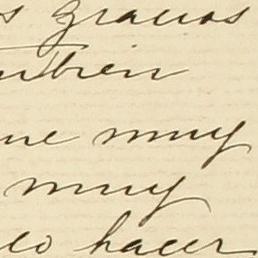 s gracias
mbien
ue muy
muy
lo hacer